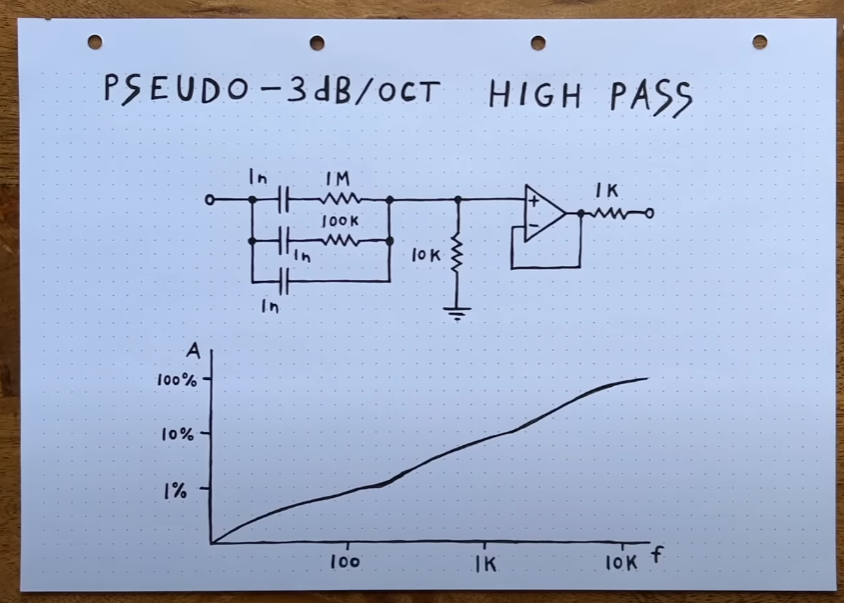 PSEUDO-3dB/OCT HIGH PASS
1n 1M
100K
1n
1n
10K
+
-
1K
A
100%
10%
1%
100 1K 10K f